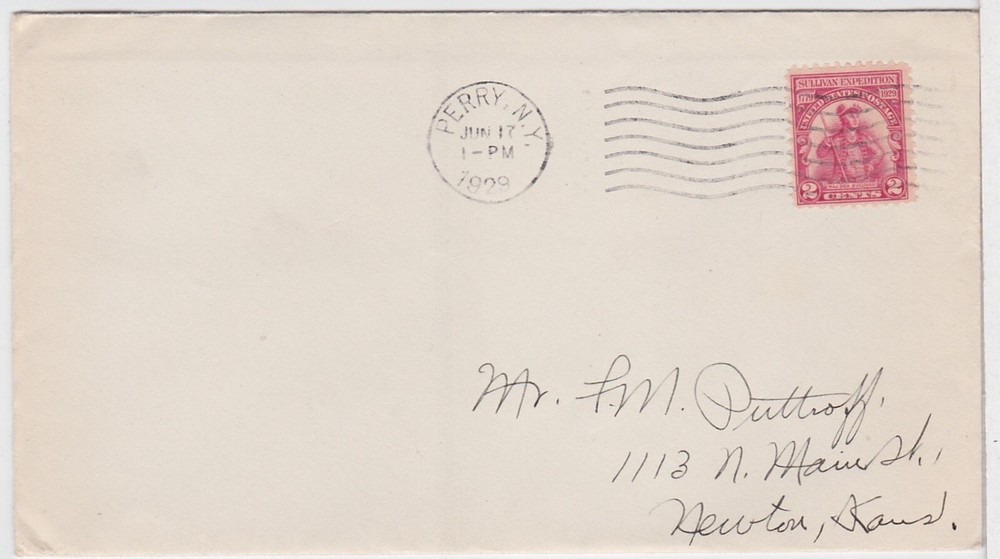 PERRY, N.Y.
JUN 17
1-PM
1929
SULLIVAN EXPEDITION
1779 1929
UNITED STATES POSTAGE
2 CENTS 2
Mr. F. M. Puttroff.
1113 N. Main St.,
Newton, Kans.